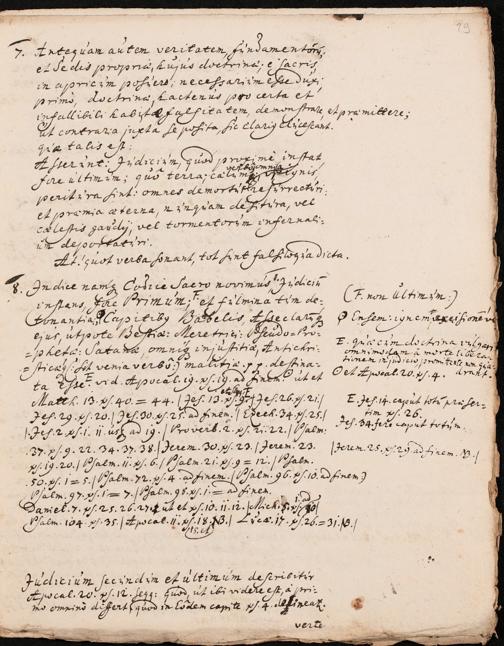 29
7. Antequam autem veritatem, fundamentorum
et sedis propriae, hujus doctrinae; è sacris
in apricum posuero; necessarium esse duxi
primò, doctrinae, hactenus pro certa et
infallibili habitae falsitatem, demonstrare et praemittere;
ut contraria juxta se posita, sic clarius elucescant.
quae talis est:
Asserunt: Judicium, quod proximè instat
fore ultimum; quo terra, coelum
peritura sint: omnes demortui resurrecturi
et praemia aeterna, nunquam desitura, vel
coelestis gaudii, vel tormentorum infernali-
um deportaturi.
At: quot verba sonant, tot sint falsiloquia dicta.
8. Indice namq Codice Sacro novimus, Judicium
instans, fore Primum; et fulmina tim de-
tonantia, Capitibus Babelis Asseclarumq
ejus, utpote Bestiae: Meretrici: Pseudo-Pro-
phetae: Satanae, omnis injustitiae, Antichri-
sticae (sit venia verbo) malitiae p.p. destina-
ta Esse. vid. Apocal. 19. ps. 19. ad finem. ut et
Matth. 13. ps. 40. = 44. | Jes. 13. ps. 9. | Jes. 26. ps. 21. |
Jes. 29. ps. 20. | Jes. 30. ps. 25. ad finem. | Ezech. 34. ps. 25. |
Jes. 2. ps. 1. 11. usq ad 19. | Proverb. 2. ps. 21. 22. | Psalm:
37. ps. 9. 22. 34. 37. 38. | Jerem. 30. ps. 23. | Jerem. 23.
ps. 19. 20. | Psalm. 11. ps. 6. | Psalm. 21. ps. 9 = 12. | Psalm.
50. ps. 1 = 5. | Psalm. 72. ps. 4. ad finem. | Psalm. 96. ps. 10. ad finem. |
Psalm. 97. ps. 1 = 7. | Psalm. 98. ps. 1. = ad finem.
Daniel. 7. ps. 25. 26. 27. ut et ps. 10. 11. 12. | Mich. 5.
Psalm. 104. ps. 35. | Apocal. 11. ps. 18. | Luc. 17. ps. 26. = 31.
(F. non Ultimum:)
Ensem: ignem
E. quia cum doctrina vulgari
et Apocal. 20. ps. 4.
E. Jes. 14. caput totum praeser-
tim ps. 26.
Jes. 34. fere caput totum.
| Jerem. 25. ps. 29. ad finem.
Judicium secundum et ultimum describitur
Apocal. 20. ps. 12. seqq: quod, ut ibi videre est, à pri-
mo omninò differt, quod in eodem capite ps. 4. delineat.
verte